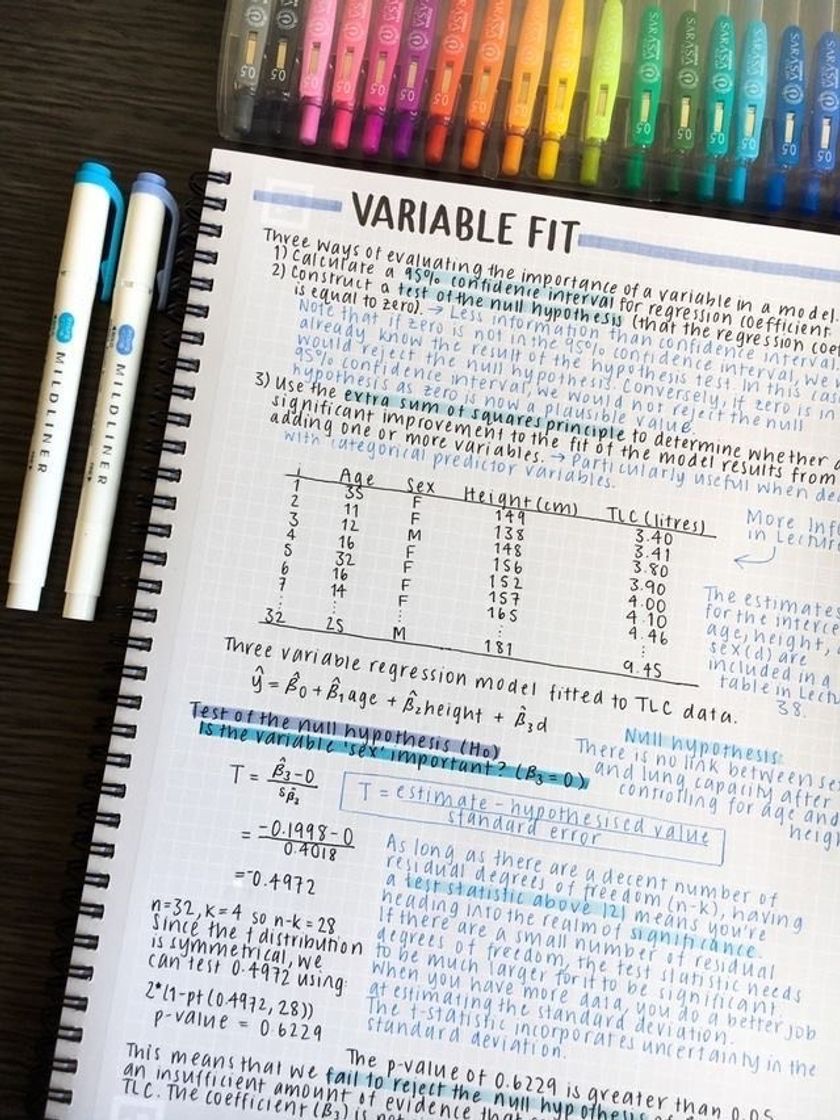 SARASA 0.5
SARASA 0.5
SARASA 0.5
SARASA 0.5
SARASA 0.5
SARASA 0.5
SARASA 0.5
SARASA 0.5
SARASA 0.5
SARASA 0.5
SARASA 0.5
SARASA 0.5
SARASA 0.5
SARASA
MILDLINER
MILDLINER
VARIABLE FIT
Three ways of evaluating the importance of a variable in a model.
1) Calculate a 95% confidence interval for regression coefficient.
2) Construct a test of the null hypothesis (that the regression coef
is equal to zero). → Less information than confidence interval.
Note that if zero is not in the 95% confidence interval, we
already know the result of the hypothesis test. In this cas
would reject the null hypothesis. Conversely, if zero is in
95% confidence interval, we would not reject the null
hypothesis as zero is now a plausible value.
3) Use the extra sum of squares principle to determine whether a
significant improvement to the fit of the model results from
adding one or more variables. → Particularly useful when de
with categorical predictor variables.
i Age Sex Height (cm) TLC (litres)
1 35 F 149 3.40
2 11 F 138 3.41
3 12 M 148 3.80
4 16 F 156 3.90
5 32 F 152 4.00
6 16 F 157 4.10
7 14 F 165 4.46
⋮ ⋮ ⋮ ⋮ ⋮
32 25 M 181 9.45
More Inf
in Lecture
The estimates
for the interce
age, height, a
sex(d) are
included in a
table in Lect
38.
Three variable regression model fitted to TLC data.
ŷ = β̂₀ + β̂₁age + β̂₂height + β̂₃d
Test of the null hypothesis (H₀)
Is the variable 'sex' important? (β₃ = 0)
Null hypothesis:
There is no link between se
and lung capacity after
controlling for age and
heigh
T = β̂₃-0
sβ̂₃
T = estimate - hypothesised value
standard error
= -0.1998-0
0.4018
= -0.4972
As long as there are a decent number of
residual degrees of freedom (n-k), having
a test statistic above |2| means you're
heading into the realm of significance.
If there are a small number of residual
degrees of freedom, the test statistic needs
to be much larger for it to be significant.
When you have more data, you do a better job
at estimating the standard deviation.
The t-statistic incorporates uncertainty in the
standard deviation.
n=32, k=4 so n-k = 28
Since the t distribution
is symmetrical, we
can test 0.4972 using:
2*(1-pt(0.4972, 28))
p-value = 0.6229
The p-value of 0.6229 is greater than 0.05
This means that we fail to reject the null hypothesis
an insufficient amount of evidence that
TLC. The coefficient (β₃) is not